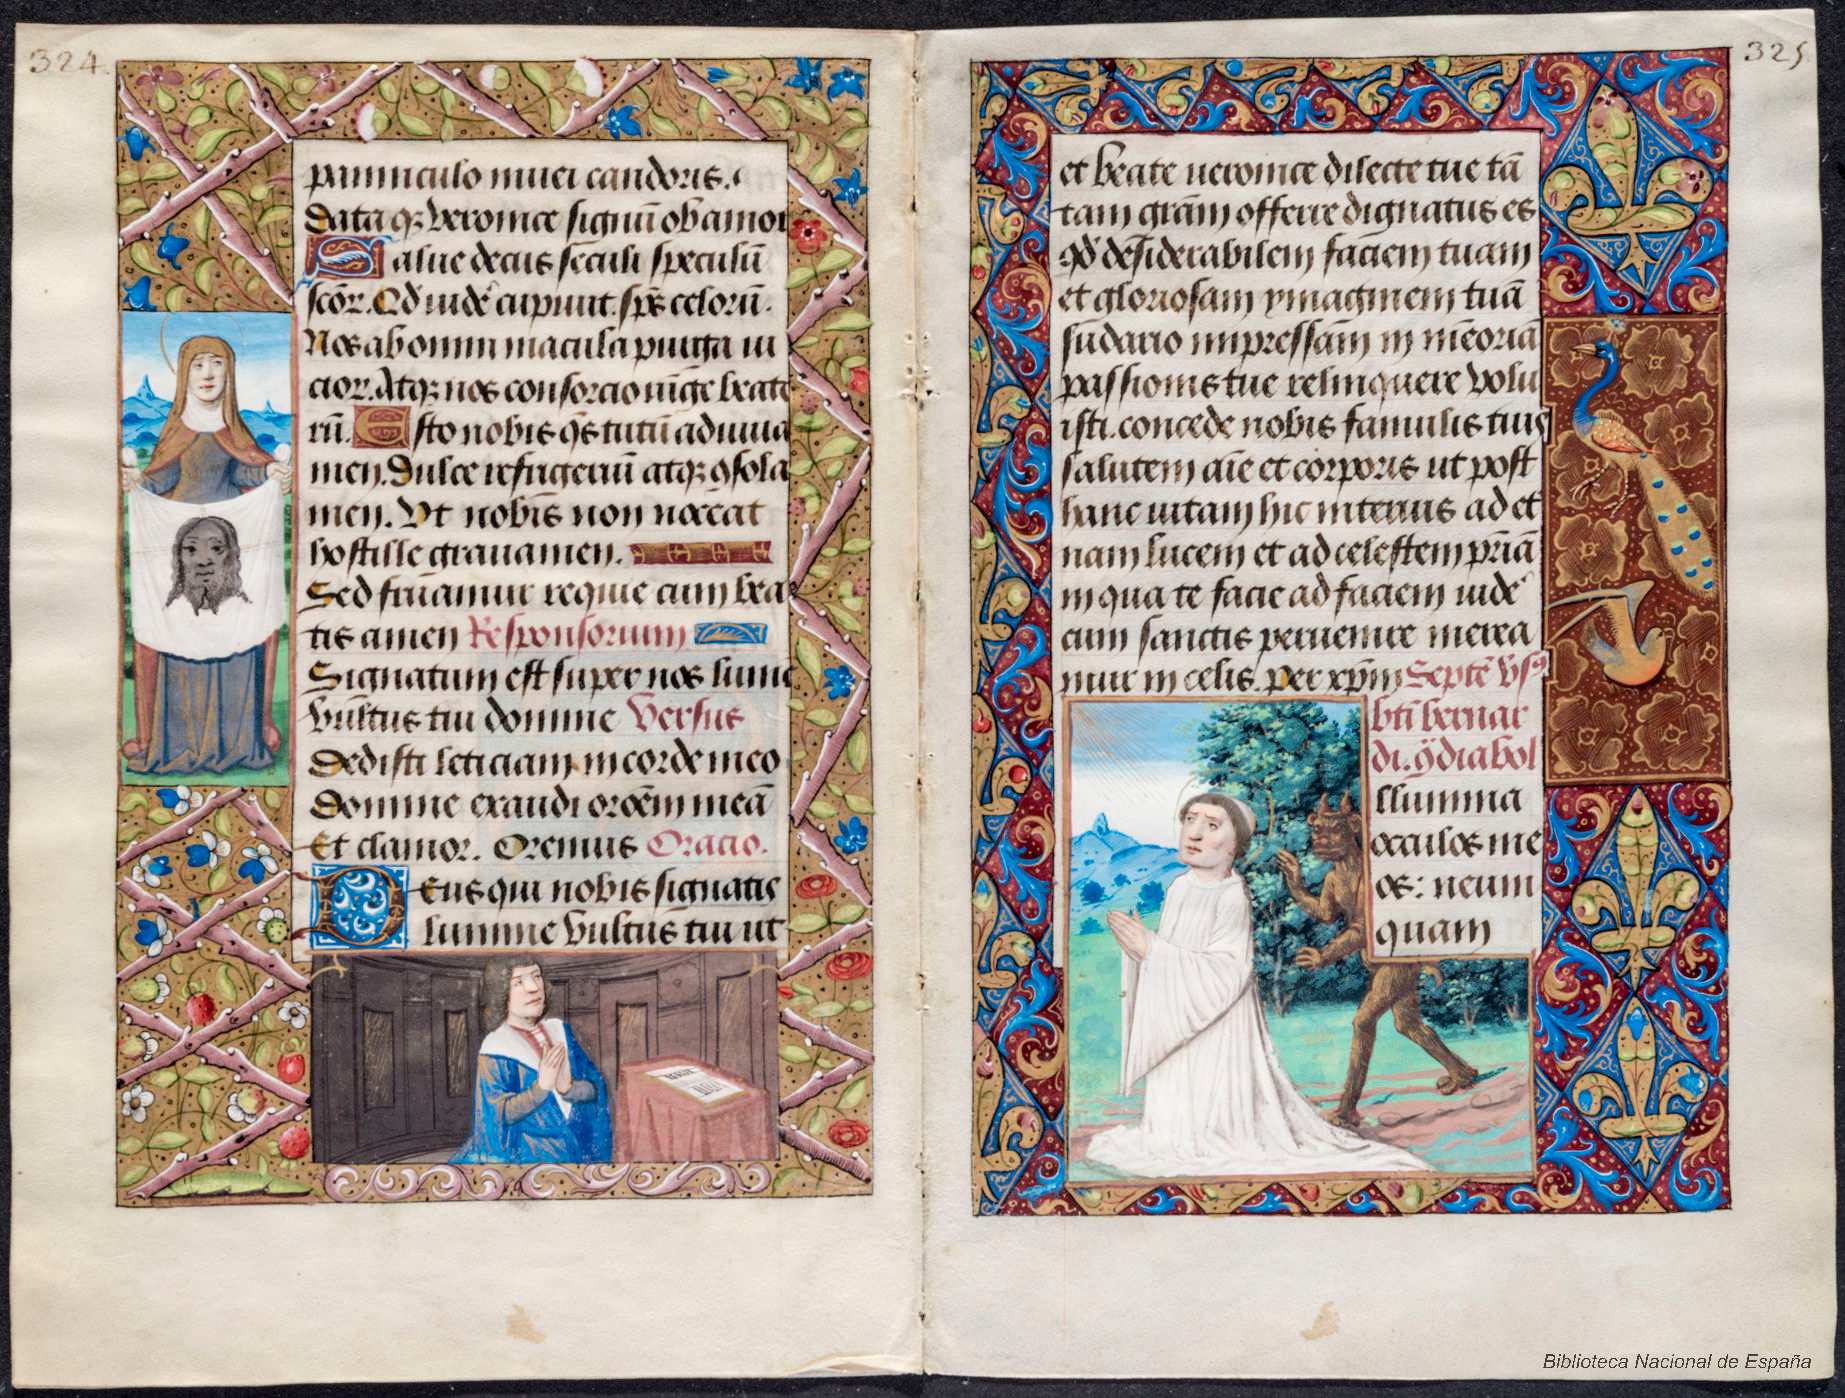 324
panniculo niuei candoris.
Data qz veronice signū ob amor
Salue decus seculi speculū
scōr. Qd uidē cupiunt. spūs celorū.
Nos ab omni macula purga ui
cior. Atqz nos consorcio iūge beato
rū. Esto nobis q̄s tutū adiuua
men. Dulce refrigeriū atqz ꝯsola
men. Vt nobis non noceat
hostille grauamen.
Sed fruamur requie cum bea
tis amen Responsorium
Signatum est super nos lume
vultus tui domine Versus
Dedisti leticiam in corde meo
Domine exaudi orōem meā
Et clamor. Oremus Oracio.
Deus qui nobis signatis
lumine vultus tui ut
325
et beate ueronice dilecte tue tā
tam grām offerre dignatus es
qd desiderabilem faciem tuam
et gloriosam ymaginem tuā
sudario impressam in memoriā
passionis tue relinquere volu
isti. concede nobis famulis tuis
salutem aīe et corporis ut post
hanc uitam hic interius ad et
nam lucem et ad celestem p̄riā
in qua te facie ad faciem uidē
cum sanctis peruenire merea
mur in celis. per xp̄m Septē vs9
bt̄i bernar
di. ꝙ diabol
Illumina
occulos me
os: ne um
quam
Biblioteca Nacional de España